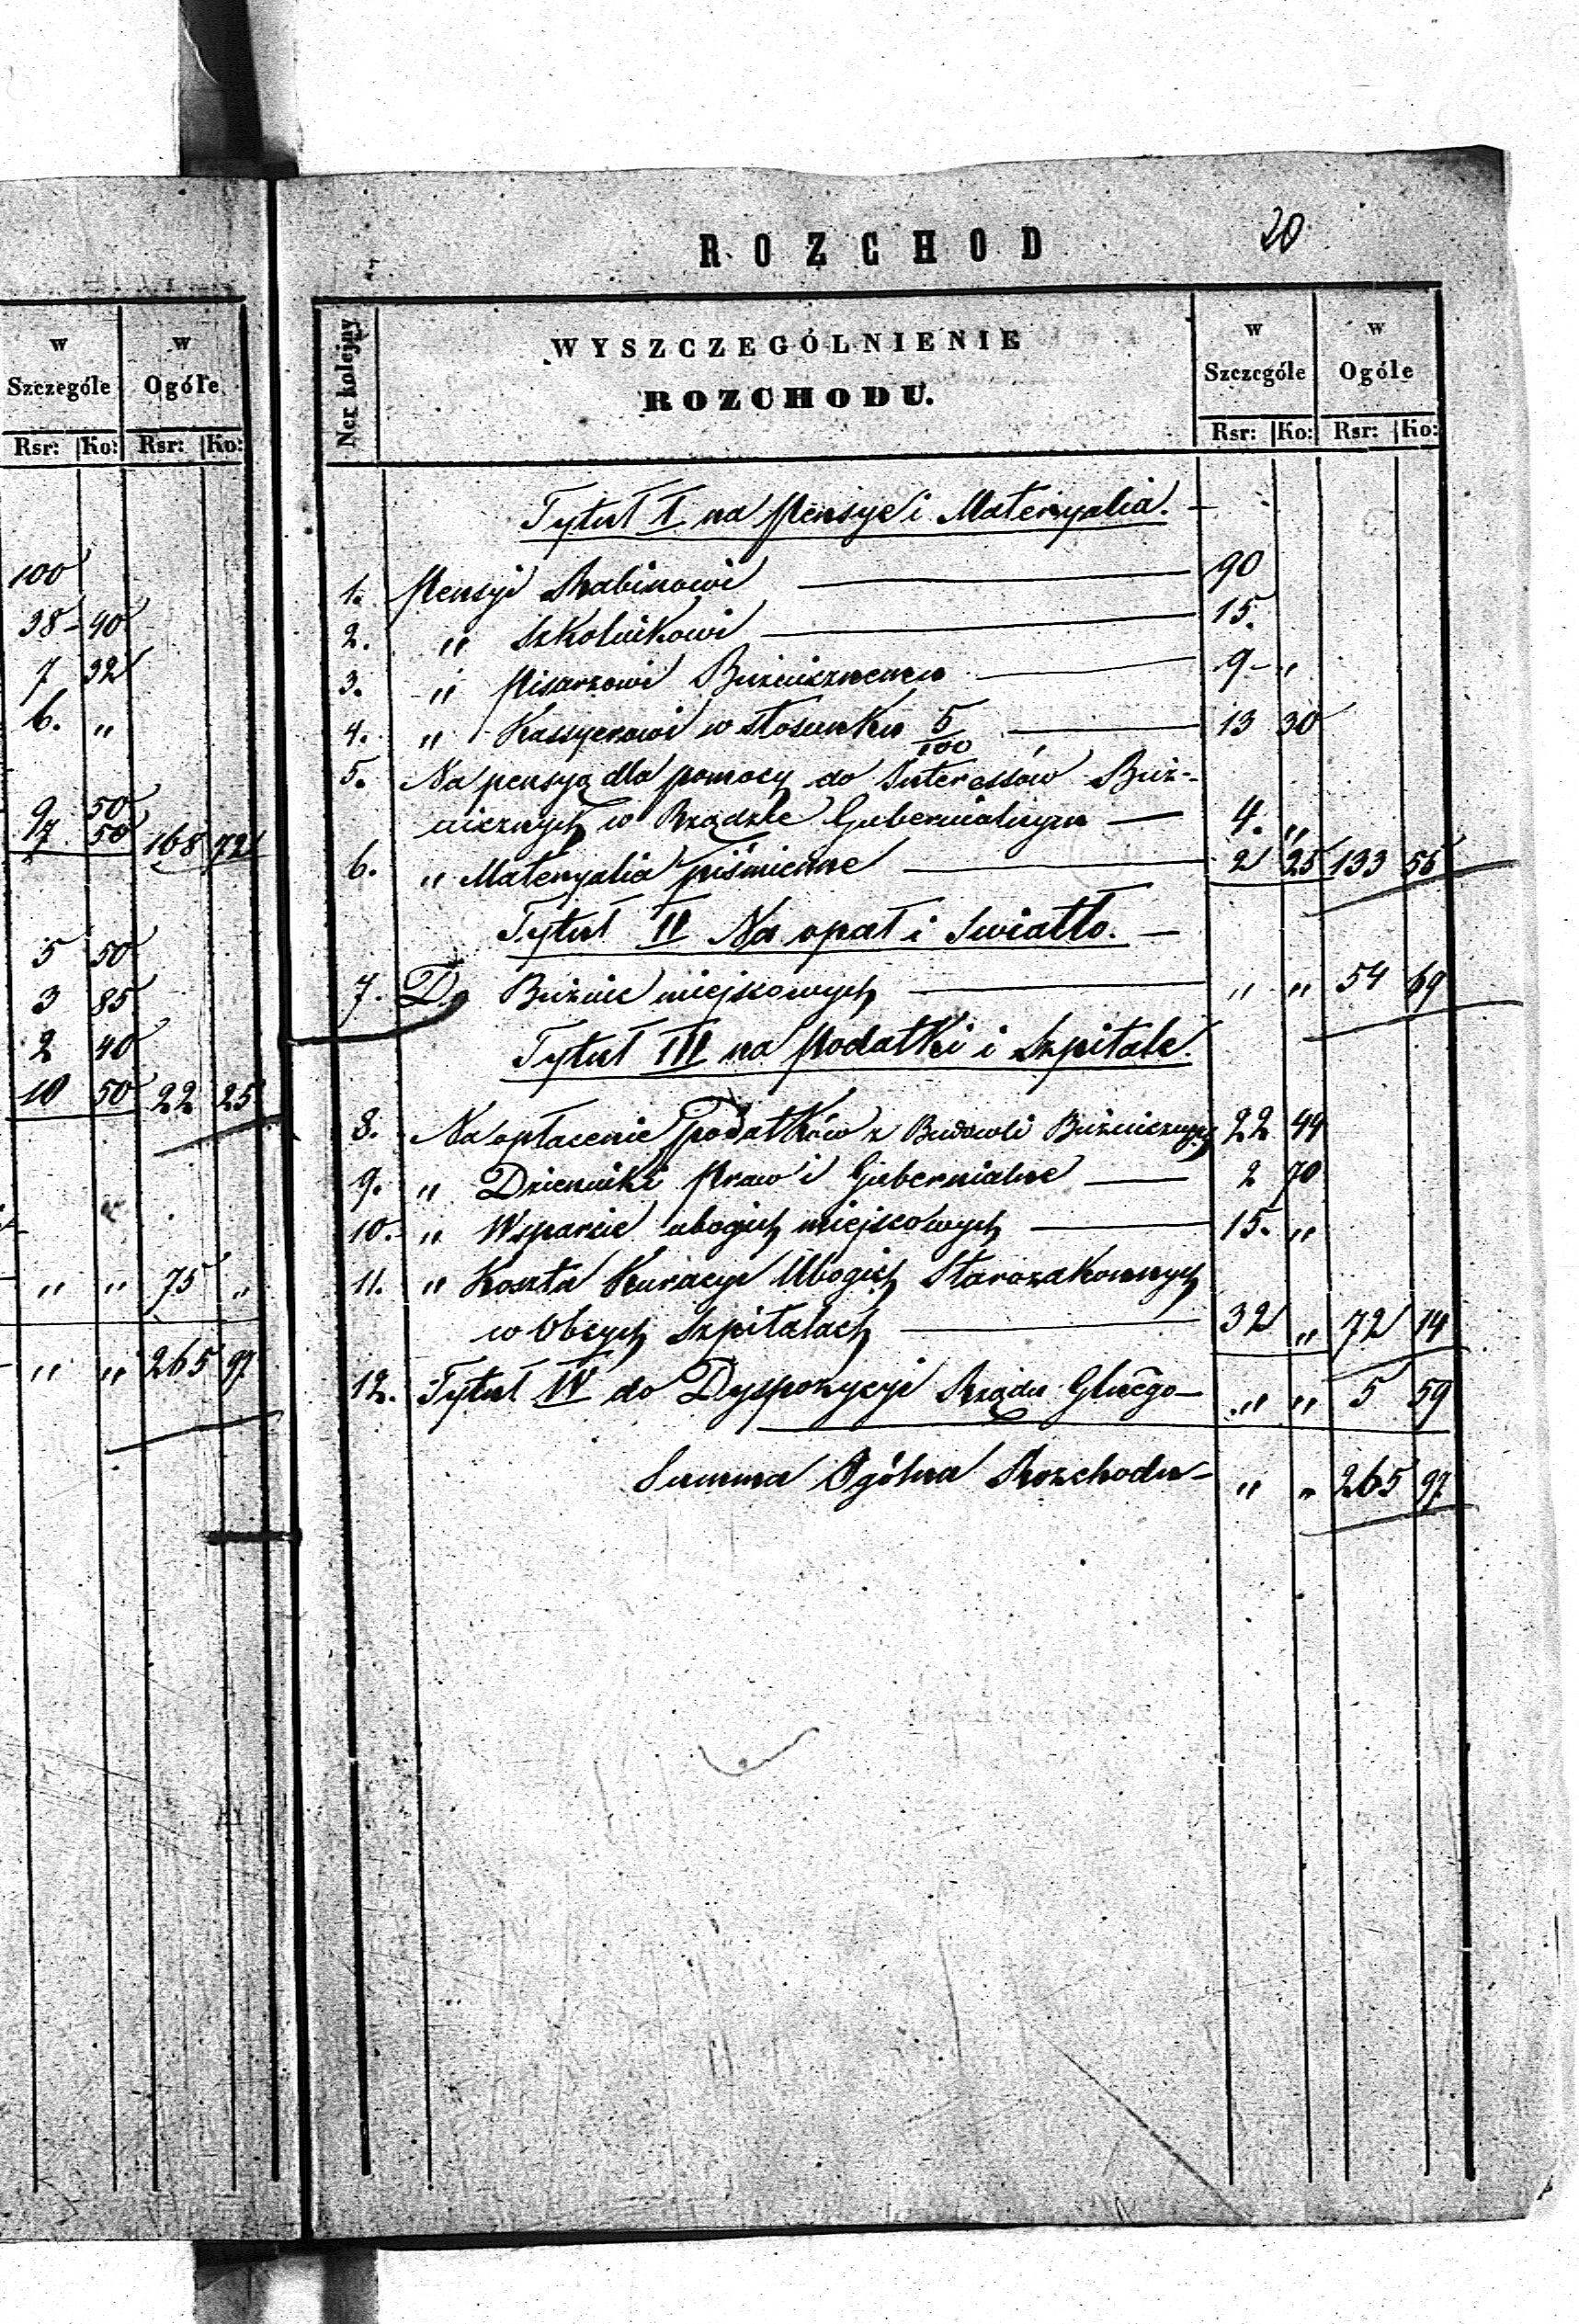 w w
Szczególe Ogóle
Rsr: Ko: Rsr: Ko:
100
38 - 40
7 32
6. „
9 50
17 50 168 72
5 50
3 85
2 40
10 50 22 25
„ „ 75 „
„ „ 265 97
ROZCHOD 20
Ner kolejny
WYSZCZEGÓLNIENIE
ROZCHODU.
w w
Szczególe Ogóle
Rsr: Ko: Rsr: Ko:
Tytuł I na Pensye i Materyalia. —
1. Pensyi Rabinowi — 90
2. „ Szkolnikowi — 15.
3. „ Pisarzowi Bużnicznemu — 9 - „
4. „ Kassyerowi w stosunku 5/100 — 13 30
5. Na pensyą dla pomocy do Interessów Buż-
nicznych w Rządzie Gubernialnym — 4. „
6. „ Materyalia piśmienne — 2 25 133 55
Tytuł II Na opał i Swiatło. —
7. Do Bużnic miejscowych — „ „ 54 69
Tytuł III na Podatki i Szpitale.
8. Na opłacenie podatków z Budowli Bużnicznych 22 44
9. „ Dzienniki Praw i Gubernialne — 2 70
10. „ Wsparcie ubogich miejscowych — 15. „
11. „ Koszta Kuracye Ubogich Starozakonnych
w Obcych Szpitalach — 32 „ 72 14
12. Tytuł IV do Dyspozycyi Rządu Gluego — „ „ 5 59
Summa Ogólna Rozchodu - „ „ 265 97